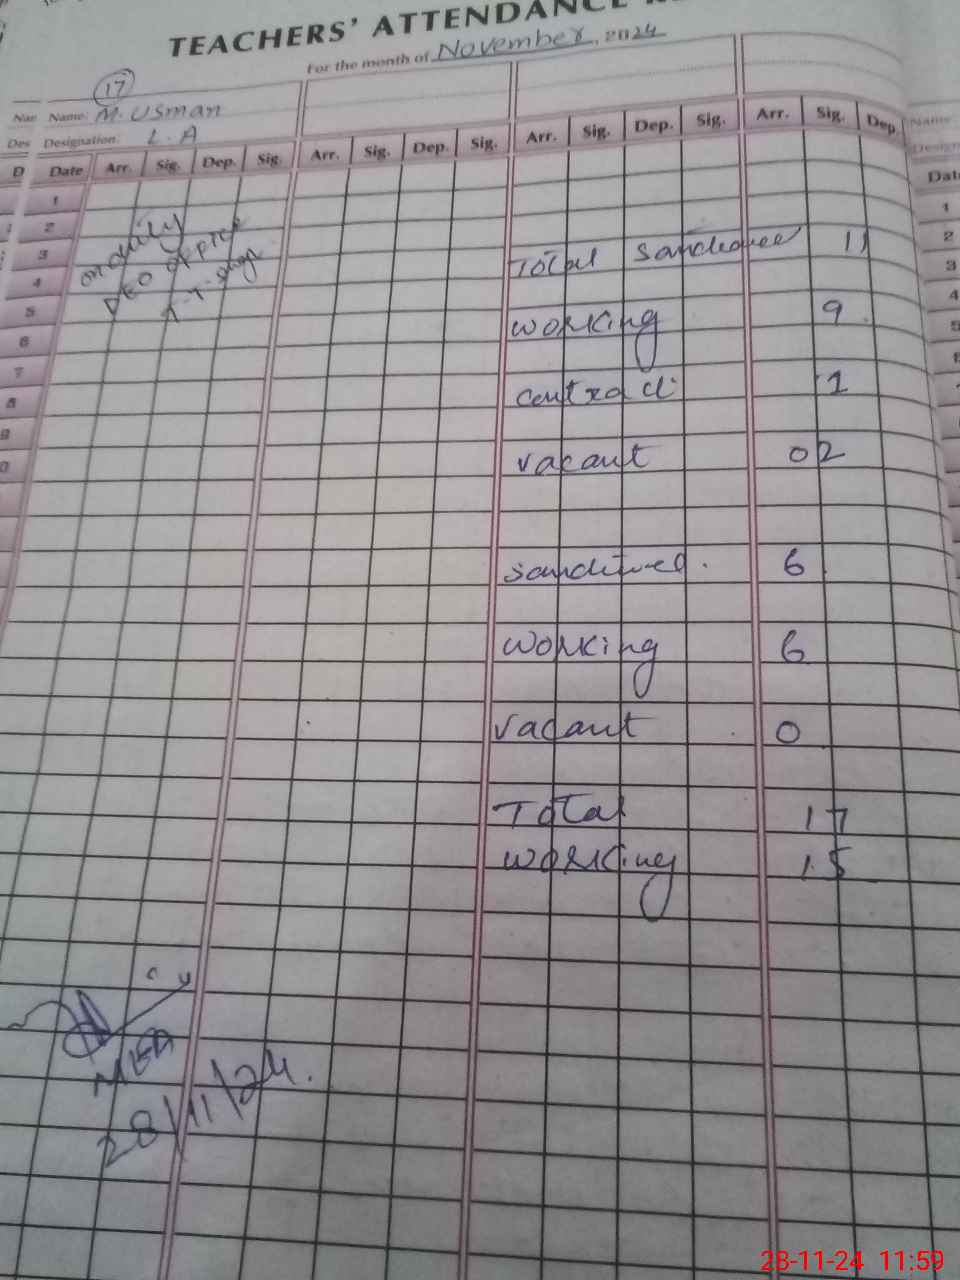 TEACHERS' ATTENDANCE
For the month of November, 2024
17
Name: M. Usman
Designation: L. A
Date Arr. Sig. Dep. Sig. Arr. Sig. Dep. Sig. Arr. Sig. Dep. Sig. Arr. Sig. Dep.
1
2
3
4
5
6
7
8
on duity
DEO office
Total 11
working 9
contract 1
vacant 02
6
working 6
vacant 0
Total 17
working 15
MEA
28/11/24.
Name
Date
1
2
3
4
5
28-11-24 11:59